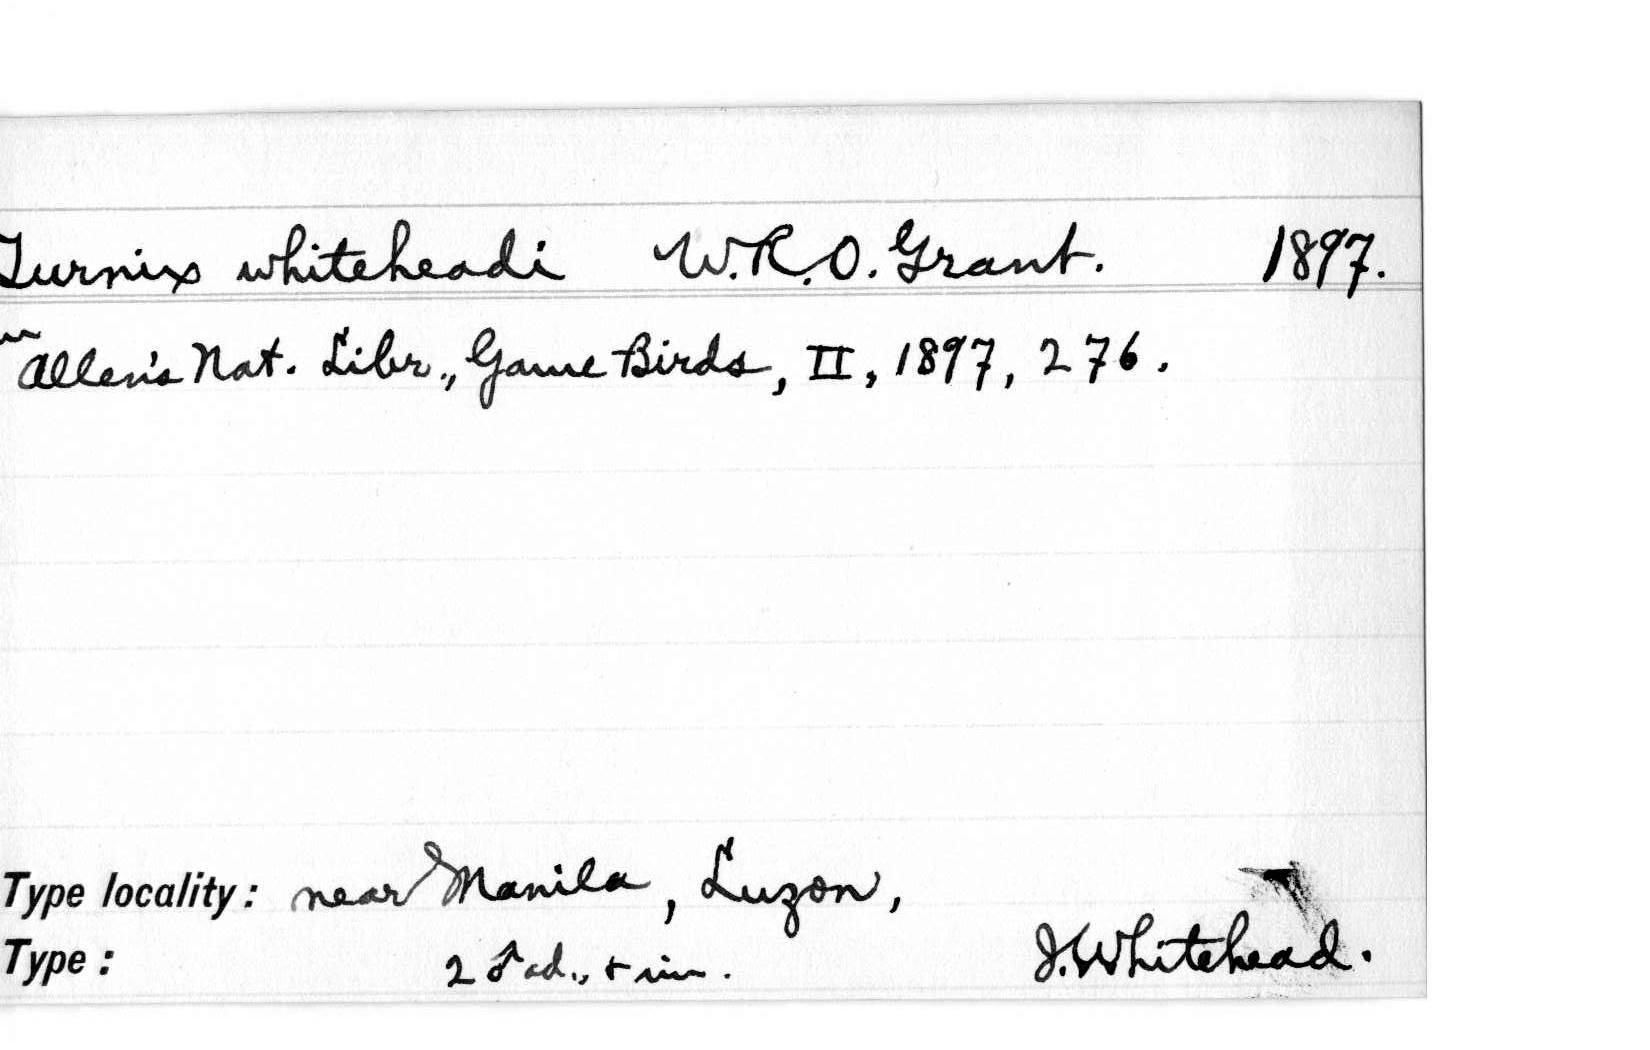 Turnix whiteheadi W.R.O. Grant. 1897.
in Allen's Nat. Libr., Game Birds, II, 1897, 276.
Type locality: near Manila, Luzon,
Type: 2 ♂ ad., + im. J. Whitehead.